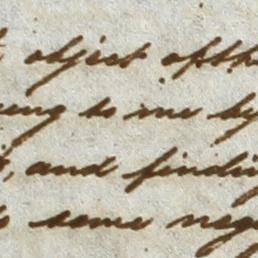 object of th
ing to me by
, and findin
some neg